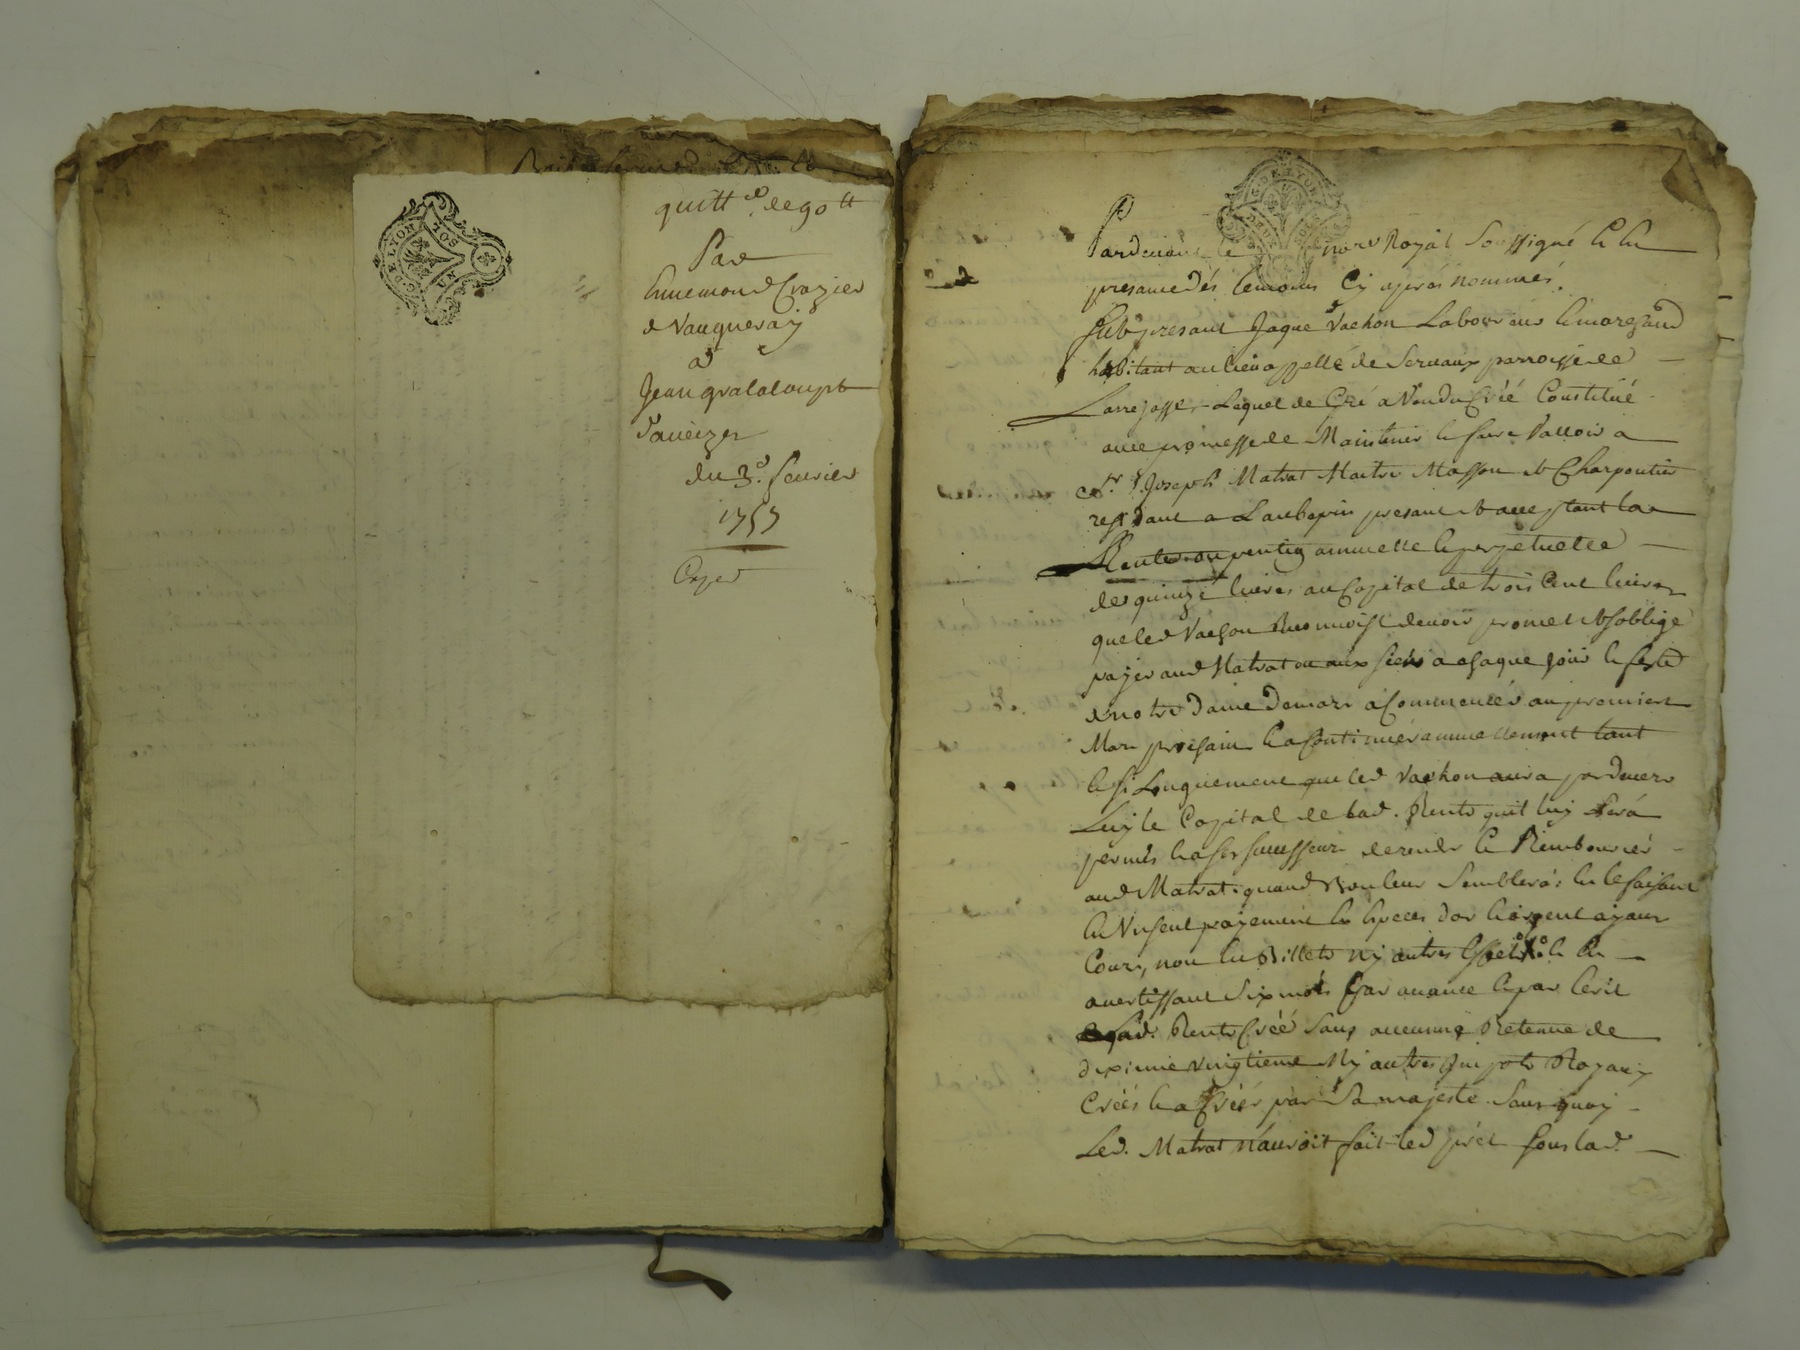 quitt.ce de 90 tt
Par
Ennemond Crozier
de Vaugneray
a
Jean gralaloupt
d'aveizes
du 3.e fevrier
1757
G.DE LYON
SOL
Pardevant le nore Royal Soussigné Et En
presance dés temoins Cy aprés nommés.
fut present Jaque Vachon Laboureur Et marchand
habitant au lieu appellé de Servaux parroisse de
Larrejasse, Lequel de Gré a Vendu Créé Constitué
avec promesse de Maintenir Et faire Valloir a
Sr. Joseph Matrat Maitre Masson Et Charpentier
residant a Laubepin present Et acceptant la
Rente ou pention annuelle Et perpetuelle
de quinze livres au Capital de trois Cent livres
que led Vachon Reconnoist devoir promet Et soblige
payer aud Matrat ou aux siens a chaque jour Et feste
de notre Dame De mars a Commencér au premier
Mars prochain Et a Continuér annuellement tant
Et si Longuement que led Vachon aura pardevers
Luy le Capital de lad. Rente quil luy Sera
permis Et a ses successeurs de rendre Et Rembourcér
aud Matrat quand Bon leur Semblera: En le faisant
En Un seul payement En Especes dor Et dargent ayant
Cours, non En Billets Ny autres Effets Et En
avertissant Six mois par avance Et par Ecrit
lad. Rente Créé Sans aucunne Retenue de
dixieme vingtieme Ny autres Impots Royaux
Créés Et a Créér par Sa majesté Sans quoy
Led. Matrat nauroit fait led prét Sous lad.